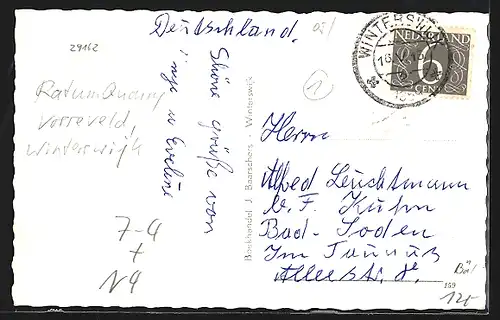 Deutschland.
29162
Ratum Quarry
Vorreveld,
Winterswijk
7-4
+
N4
Schöne grüße von
Inge u Eveline
Boekhandel J. Baarschers - Winterswijk
1
WINTERSWIJK
NEDERLAND
6
CENT
Herrn
Alfred Leuchtmann
b. F. Kuhn
Bad-Soden
Im Taunus
Alleestr. 8
169
12,-